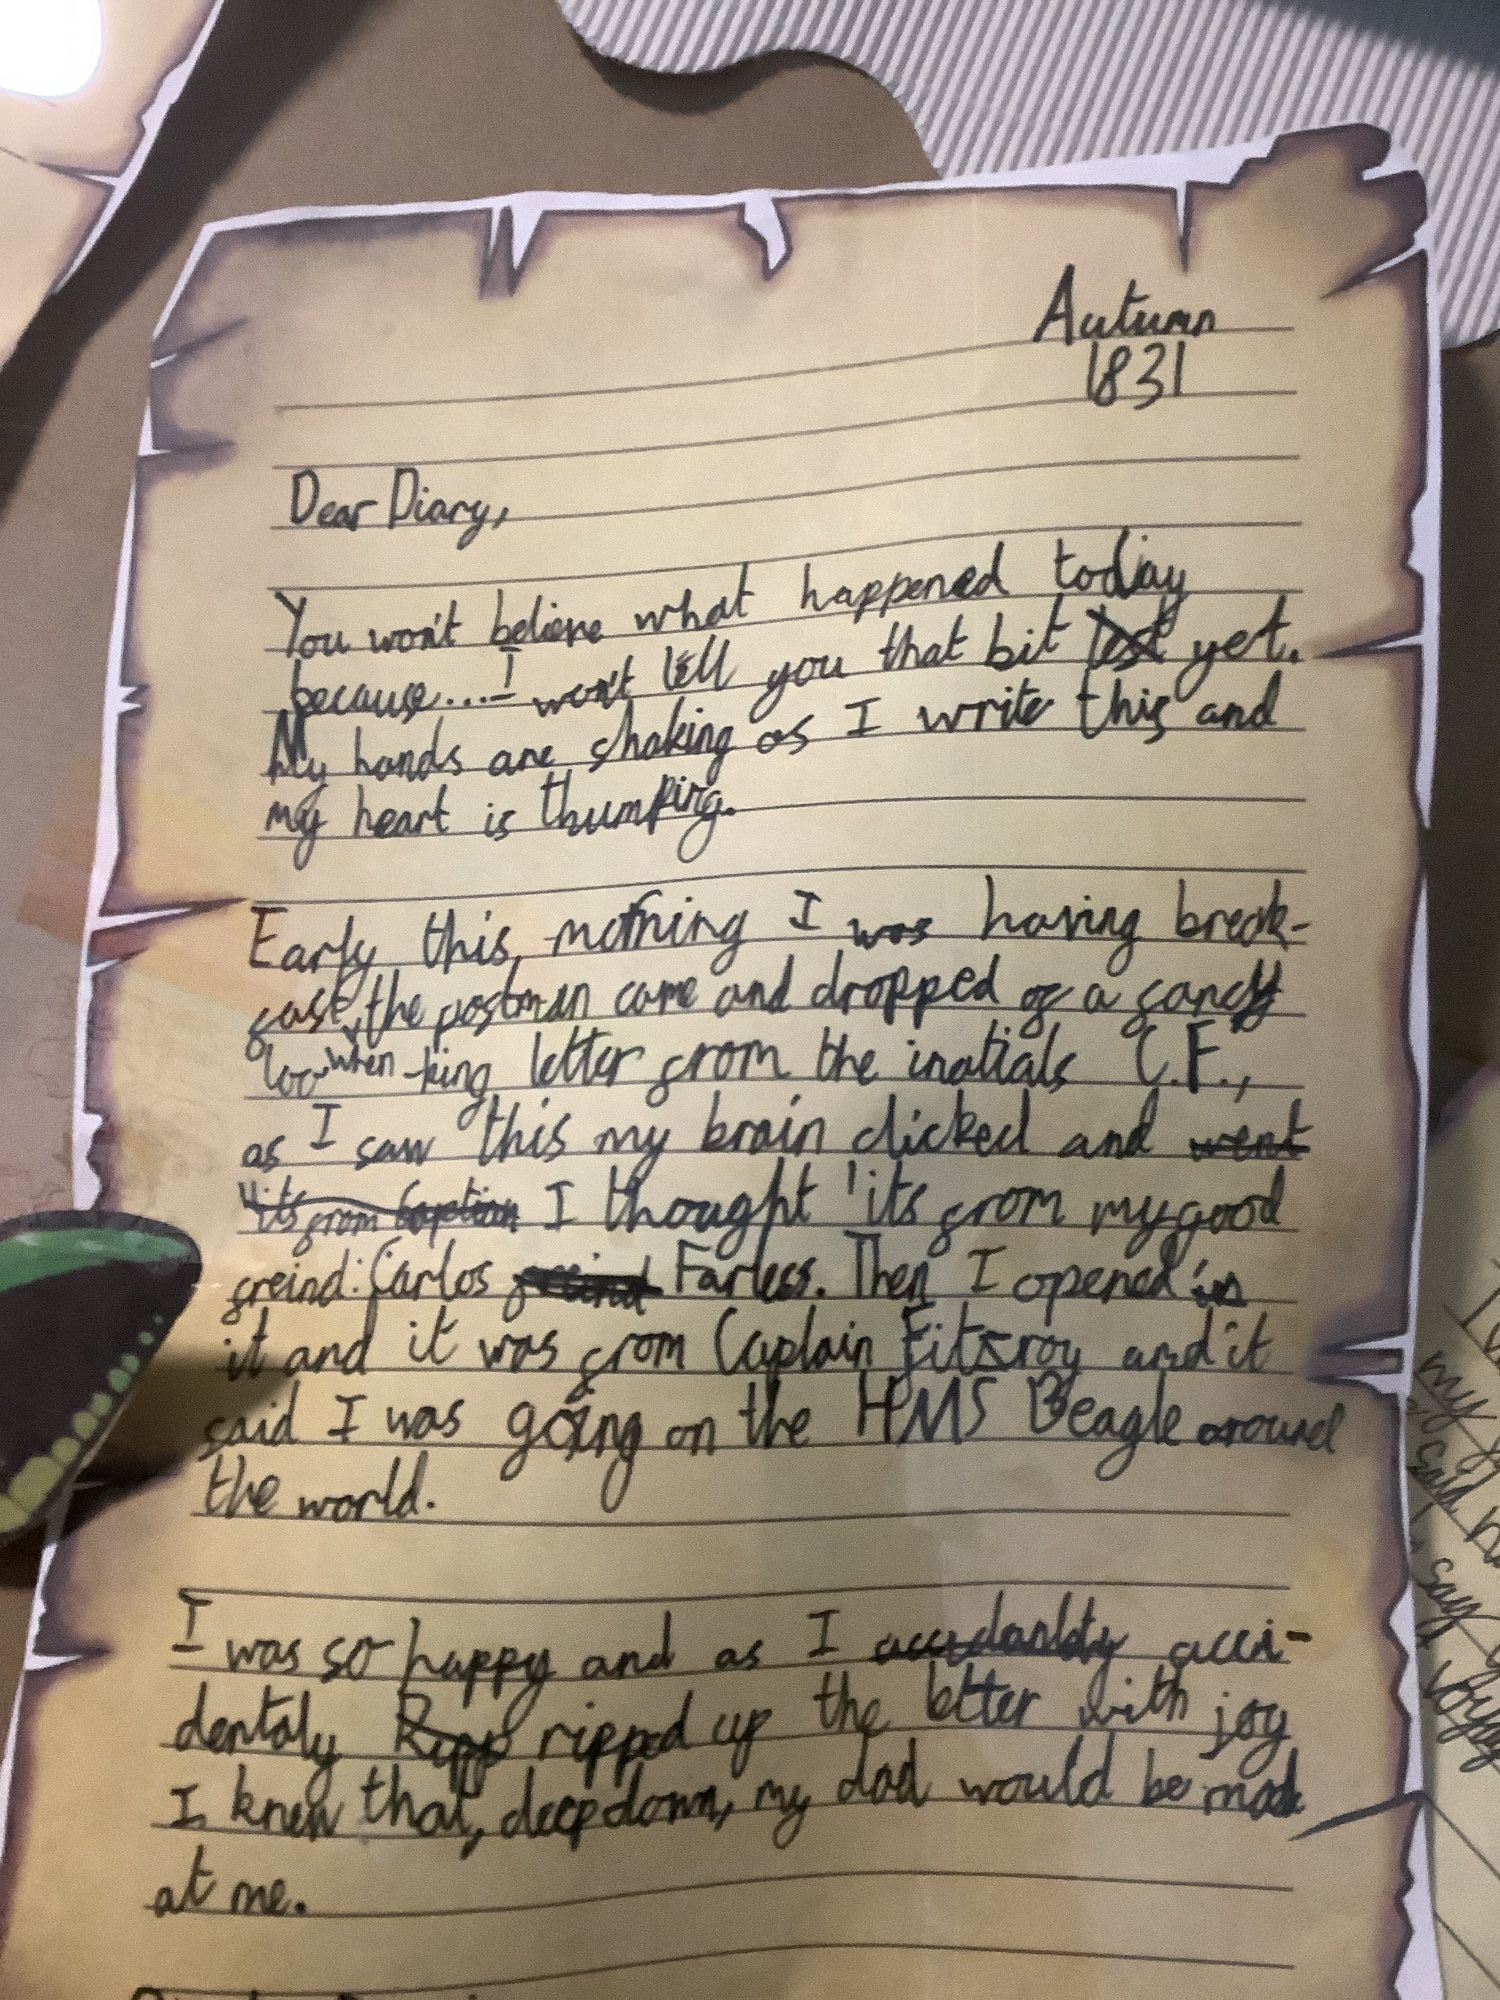 Autumn
1831
Dear Diary,
You won't believe what happened today
because...I won't tell you that bit yet.
My hands are shaking as I write this and
my heart is thumping.
Early this, morning I was having break-
fast, the postman came and dropped of a fancy
loo when -king letter from the inatials C.F.,
as I saw this my brain clicked and went
"its from Captian I thought 'its from my good
freind: Carlos freind Farless. Then I opened in
it and it was from Captain Fitzroy and it
said I was going on the HMS Beagle around
the world.
I was so happy and as I accidantly acci-
dentaly Ripp ripped up the letter with joy
I knew that, deep down, my dad would be mad
at me.
my
said
I
say